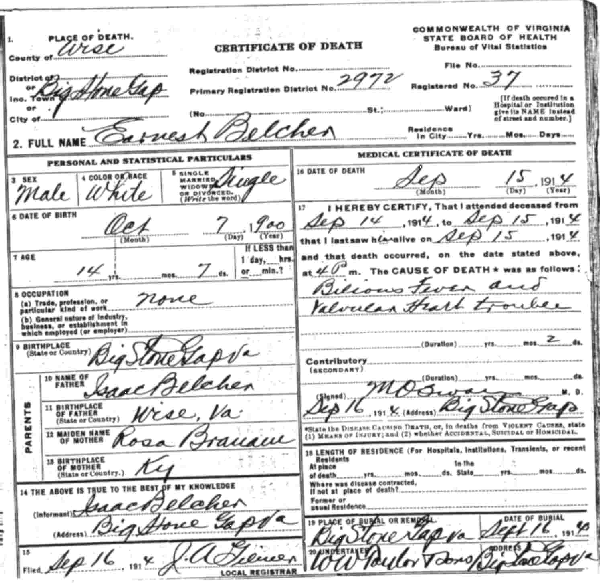 1. PLACE OF DEATH.
County of Wise
District of
or
Inc. Town of Big Stone Gap
or
City of
CERTIFICATE OF DEATH
COMMONWEALTH OF VIRGINIA
STATE BOARD OF HEALTH
Bureau of Vital Statistics
Registration District No.
File No.
Primary Registration District No. 2972
Registered No. 37
(No. St.; Ward)
(If death occured in a Hospital or Institution give its NAME instead of street and number.)
2. FULL NAME Earnest Belcher
Residence in City Yrs. Mos. Days
PERSONAL AND STATISTICAL PARTICULARS
3 SEX Male
4 COLOR OR RACE White
5 SINGLE MARRIED, WIDOWED OR DIVORCED. (Write the word) Single
6 DATE OF BIRTH
Oct 7 1900
(Month) (Day) (Year)
7 AGE
14 yrs. mos. 7 ds.
If LESS than 1 day, hrs. or min.?
8 OCCUPATION
(a) Trade, profession, or particular kind of work none
(b) General nature of industry, business, or establishment in which employed (or employer)
9 BIRTHPLACE
(State or Country) Big Stone Gap Va
PARENTS
10 NAME OF FATHER Isaac Belcher
11 BIRTHPLACE OF FATHER (State or Country) Wise, Va
12 MAIDEN NAME OF MOTHER Rosa
13 BIRTHPLACE OF MOTHER (State or Country.) Ky
14 THE ABOVE IS TRUE TO THE BEST OF MY KNOWLEDGE
(Informant) Isaac Belcher
(Address) Big Stone Gap Va
15
Filed, Sep 16 1914 J.A.
LOCAL REGISTRAR
MEDICAL CERTIFICATE OF DEATH
16 DATE OF DEATH
Sep 15 1914
(Month) (Day) (Year)
17 I HEREBY CERTIFY, That I attended deceased from
Sep 14, 1914 to Sep 15, 1914
that I last saw him alive on Sep 15, 1914
and that death occurred, on the date stated above,
at 4 P m. The CAUSE OF DEATH * was as follows:
Bilious Fever and
Valvular Heart trouble
(Duration) yrs. mos. 2 ds.
Contributory
(SECONDARY)
(Duration) yrs. mos. ds.
(Signed) M. D.
Sep 16 1914 (Address) Big Stone Gap
*State the DISEASE CAUSING DEATH, or, in deaths from VIOLENT CAUSES, state
(1) MEANS OF INJURY; and (2) whether ACCIDENTAL, SUICIDAL OR HOMICIDAL.
18 LENGTH OF RESIDENCE (For Hospitals, Institutions, Transients, or recent Residents
At place of death yrs. mos. ds. In the State yrs. mos. ds.
Where was disease contracted,
If not at place of death?
Former or
usual Residence
19 PLACE OF BURIAL OR REMOVAL DATE OF BURIAL
Big Stone Gap Va Sept 16 1914
20 UNDERTAKER ADDRESS
W W Taylor Sons Big Stone Gap Va